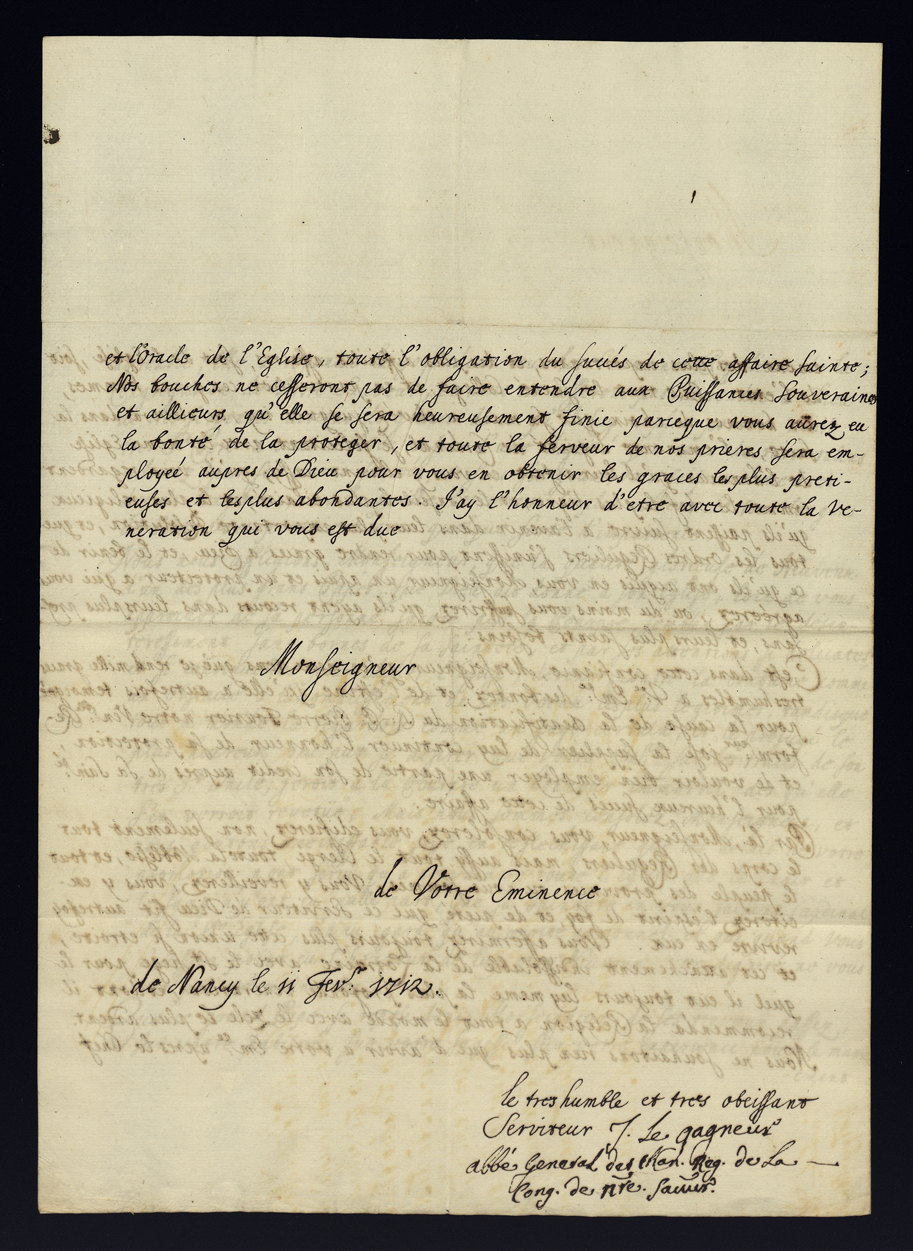 et l'Oracle de l'Eglise, toute l'obligation du succés de cette affaire sainte;
Nos bouches ne cesseront pas de faire entendre aux Puissances Souveraines
et ailleurs qu'elle se sera heureusement finie parceque vous aurez eu
la bonté de la proteger, et toute la ferveur de nos prieres sera em-
ployeé aupres de Dieu pour vous en obtenir les graces les plus preti-
euses et les plus abondantes. J'ay l'honneur d'etre avec toute la ve-
neration qui vous est due
Monseigneur
de Votre Eminence
de Nancy le 11 Fevr. 1712.
le tres humble et tres obeissant
Serviteur J. Le gagneur
abbé General des Chan. Reg. de La
Cong. de nre. sauvr.